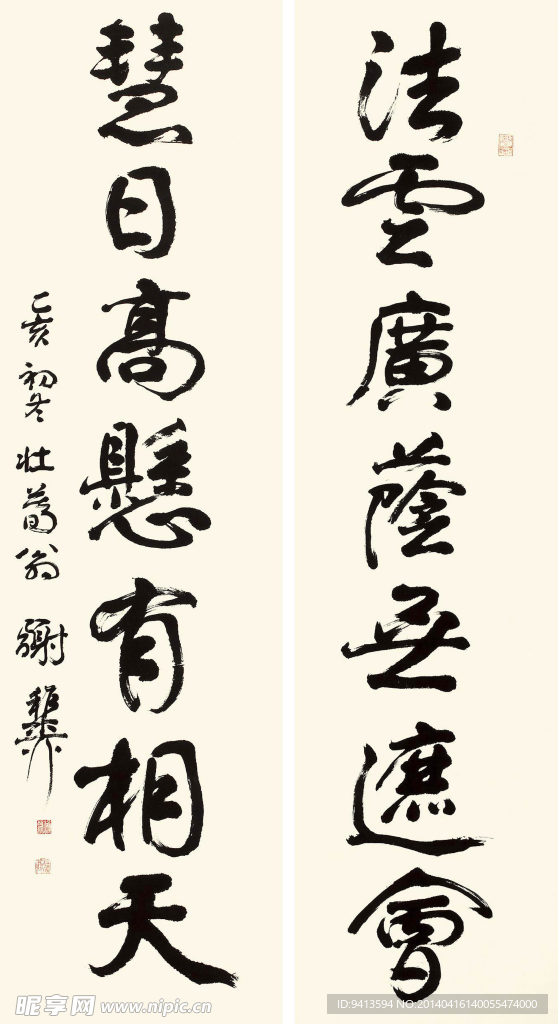 法雲廣蔭無遮會
慧日高懸有相天
乙亥初冬壯暮翁謝稚
昵享网 www.nipic.cn
ID:9413594 NO:20140416140055474000